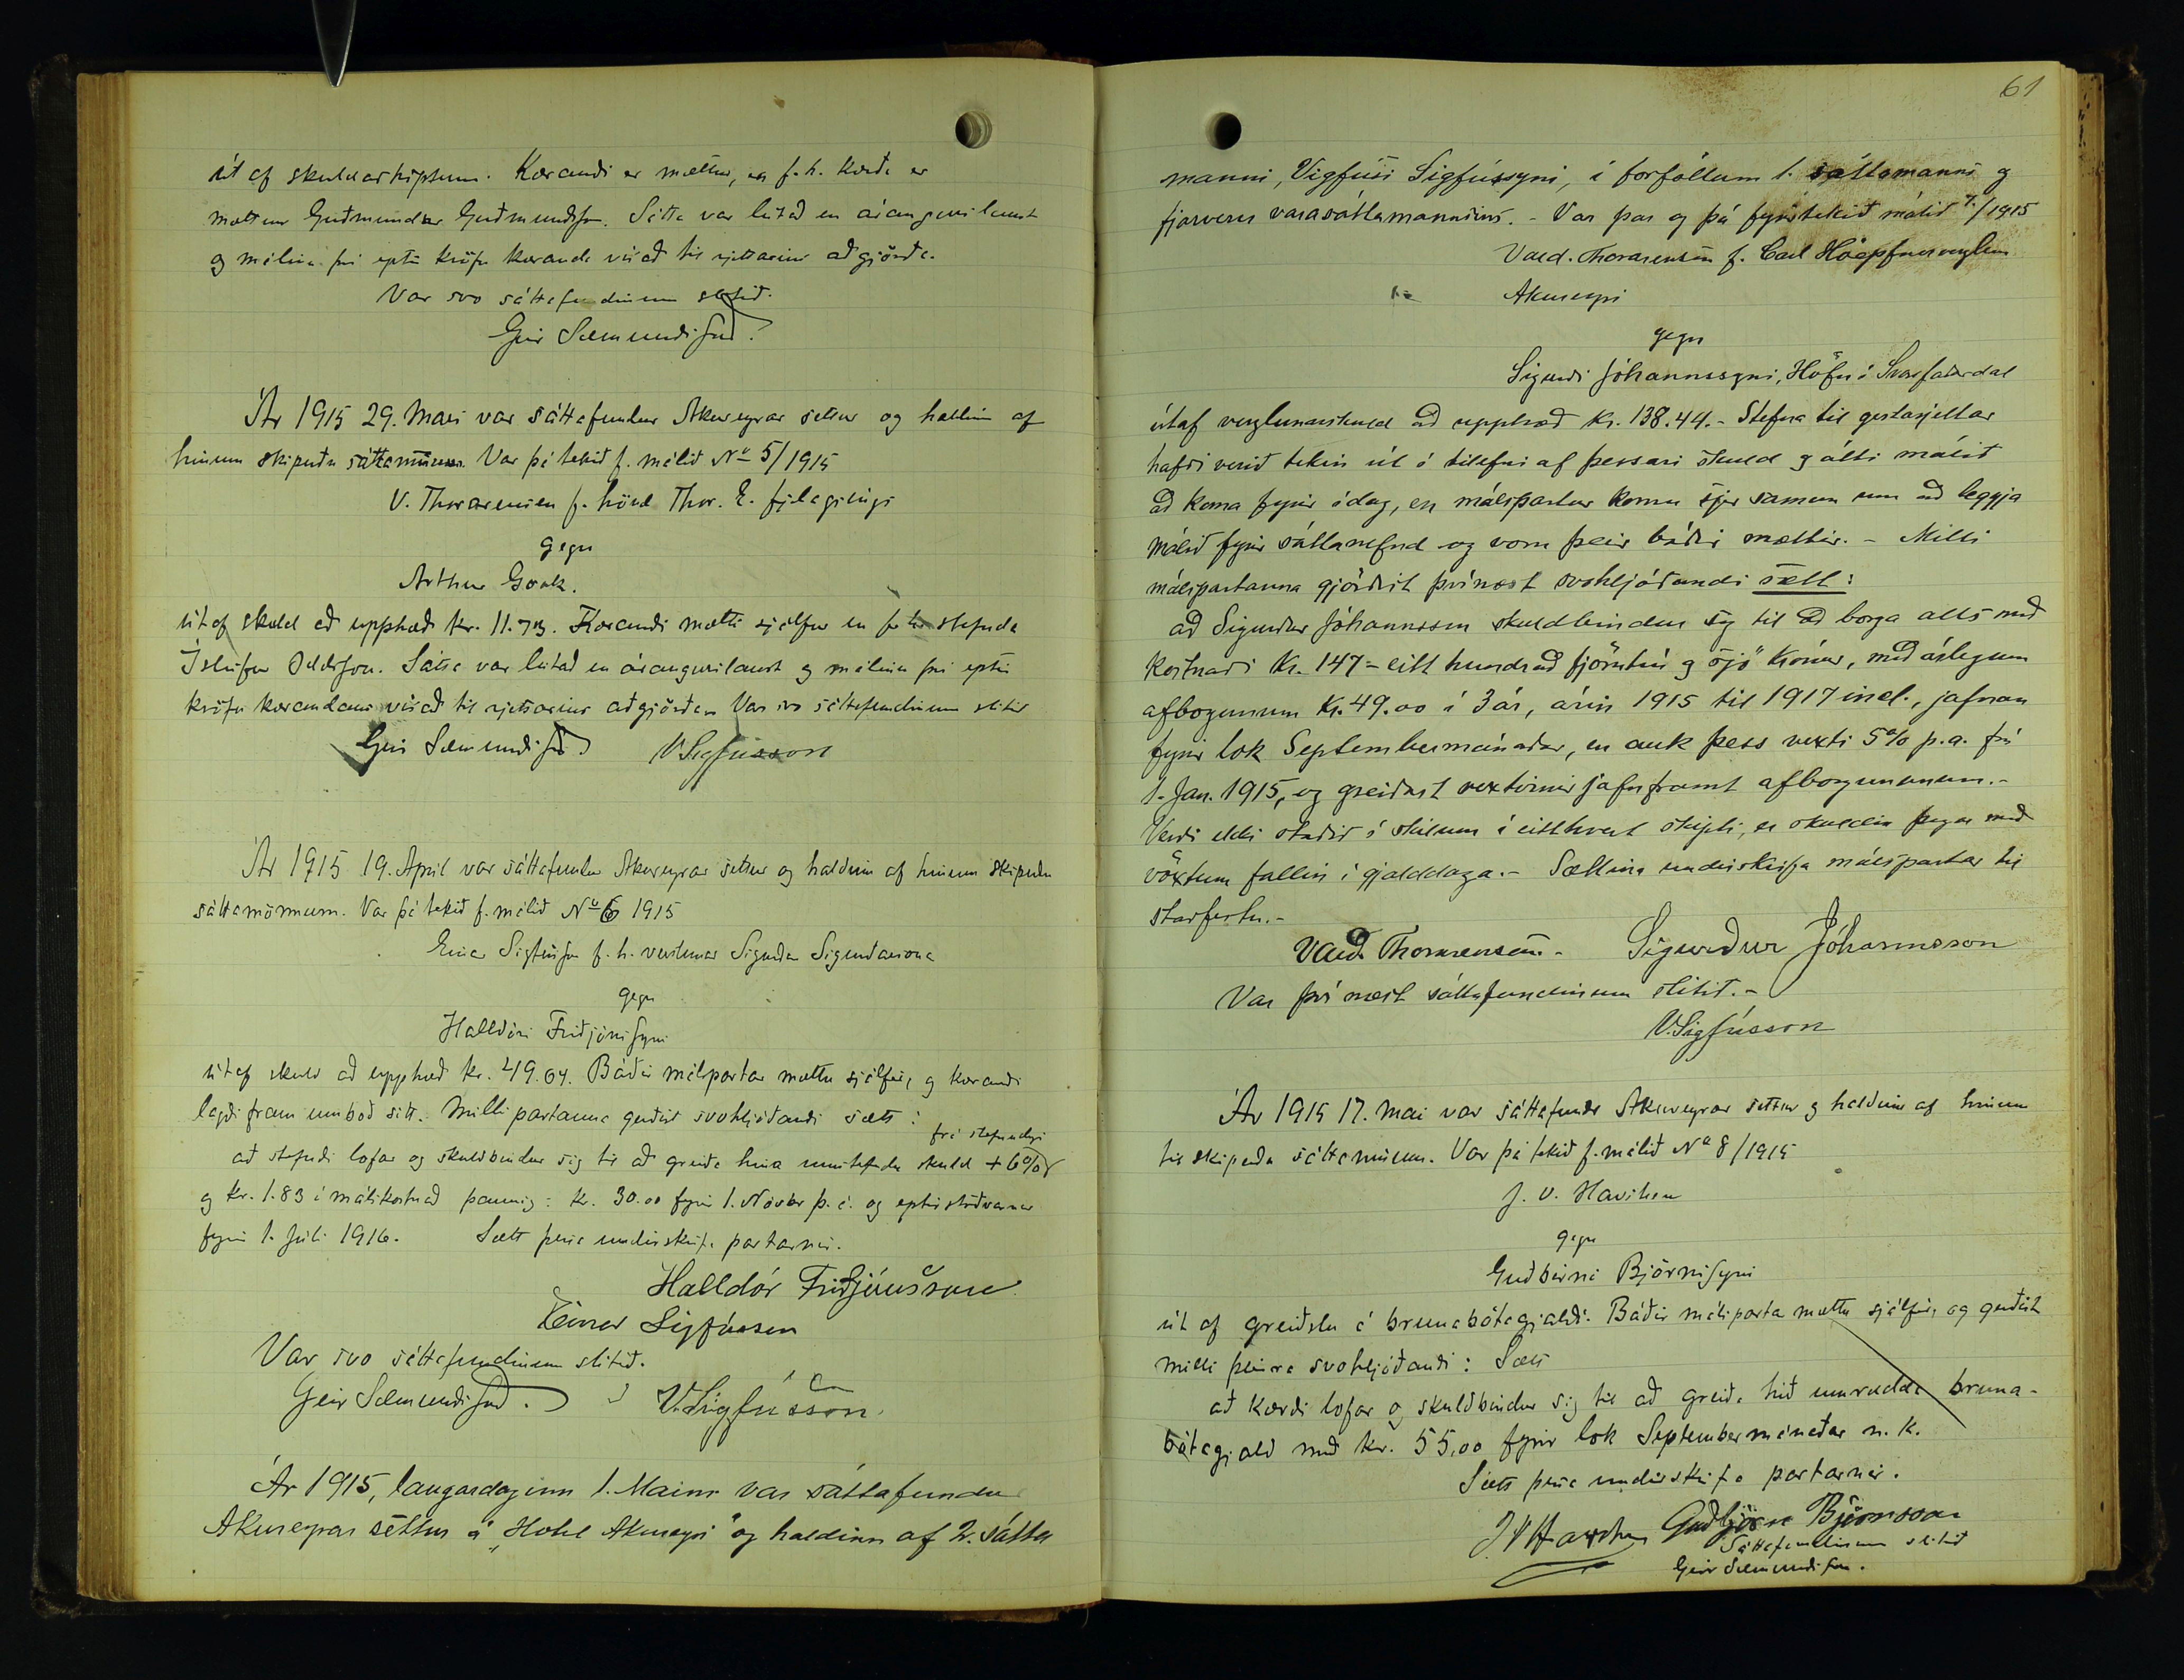 út af skuldaskiptum. Kærandi er mættur, en f. h. kærða er
mættur Guðmundur Guðmundsson. Sátta var leitað en árangurslaust
og málinu því eptir kröfu kæranda vísað til rjettarins aðgjörða.
Var svo sáttafundinum slitið.
Geir Sæmundsson.
Ár 1915 29. Mars var sáttafundur Akureyrar settur og haldinn af
hinum skipuðu sáttamönnum. Var þá tekið f. málið No 5/1915
V. Thorarensen f. hönd Thor. E. fjelagsings
gegn
Arthur Gook.
út af skuld að upphæð kr. 11.73. Kærandi mætti sjálfur en f. h. stefnda
Ísleifur Oddsson. Sátta var leitað en árangurslaust og málinu því eptir
kröfu kærandans vísað til rjettarins aðgjörða. Var svo sáttafundinum slitið
Geir Sæmundsson V. Sigfússon
Ár 1915 19. Apríl var sáttafundur Akureyrar settur og haldinn af hinum skipuðu
sáttamönnum. Var þá tekið f. málið No 6 1915
Einar Sigfússon f. h. verslunar Sigurðar Sigurðssonar
gegn
Halldóri Friðjónssyni
út af skuld að upphæð kr. 49.64. Báðir málspartar mættu sjálfir, og kærandi
lagði fram umboð sitt. Milli partanna gerðist svohljóðandi sætt:
frá stefnudegi
að stefndi lofar og skuldbindur sig til að greiða hina umstefndu skuld + 6%
og kr. 1.83 í málskostnað þannig: kr. 30.00 fyrir 1. Nóvbr þ. á. og eptirstöðvarnar
fyrir 1. Júlí 1916. Sætt þessa undirskrifa partarnir.
Halldór Friðjónsson
Einar Sigfússon
Var svo sáttafundinum slitið.
Geir Sæmundsson. V. Sigfússon.
Ár 1915, laugardaginn 1. Maím var sáttafundur
Akureyrar settur á "Hotel Akureyri" og haldinn af 2. sátta
61
manni, Vigfúsi Sigfússyni, í forföllum 1. sáttamanns og
fjarveru varasáttamannsins. - Var þar og þá fyrirtekið málið 7./1915
Vald. Thorarensen f. Carl Höepfnersverzlun
Akureyri
gegn
Sigurði Jóhannssyni, Höfn í Svarfaðardal
útaf verzlunarskuld að upphæð kr. 138.44. - Stefna til gestarjettar
hafði verið tekin út í tilefni af þessari skuld og átti málið
að koma fyrir í dag, en málspartar komu sjer saman um að leggja
málið fyrir sáttanefnd og voru þeir báðir mættir. - Milli
málspartanna gjörðist þvínæst svohljóðandi sætt:
að Sigurður Jóhannsson skuldbindur sig til að borga alls með
kostnaði kr. 147 = eitt hundrað fjörutíu og sjö krónur, með árlegum
afborgunum kr. 49.00 í 3 ár, árin 1915 til 1917 incl., jafnan
fyrir lok Septembermánaðar, en auk þess vexti 5% p.a. frá
1. Jan. 1915, og greiðast vextirnir jafnframt afborgununum. -
Verði ekki staðið í skilum í eitthvert skipti, er skuldin þegar með
vöxtum fallin í gjalddaga. - Sættina undirskrifa málspartar til
staðfestu. -
Vald. Thorarensen - Sigurður Jóhannsson
Var því næst sáttafundinum slitið. -
V. Sigfússon
Ár 1915 17. Maí var sáttafundr Akureyrar settur og haldinn af hinum
til skipuðu sáttamönnum. Var þá tekið f. málið No 8/1915
J. V. Havsteen
gegn
Guðbirni Björnssyni
út af greiðslu á brunabótagjaldi. Báðir málsparta mættu sjálfir, og gerðist
milli þeirra svohljóðandi: Sætt
að kærði lofar og skuldbindur sig til að greiða hið umrædda bruna-
bótagjald með kr. 55,00 fyrir lok Septembermánaðar n. k.
Sætt þessa undirskrifa partarnir.
J V Havsteen Guðbjörn Björnsson
Sáttafundinum slitið
Geir Sæmundsson.